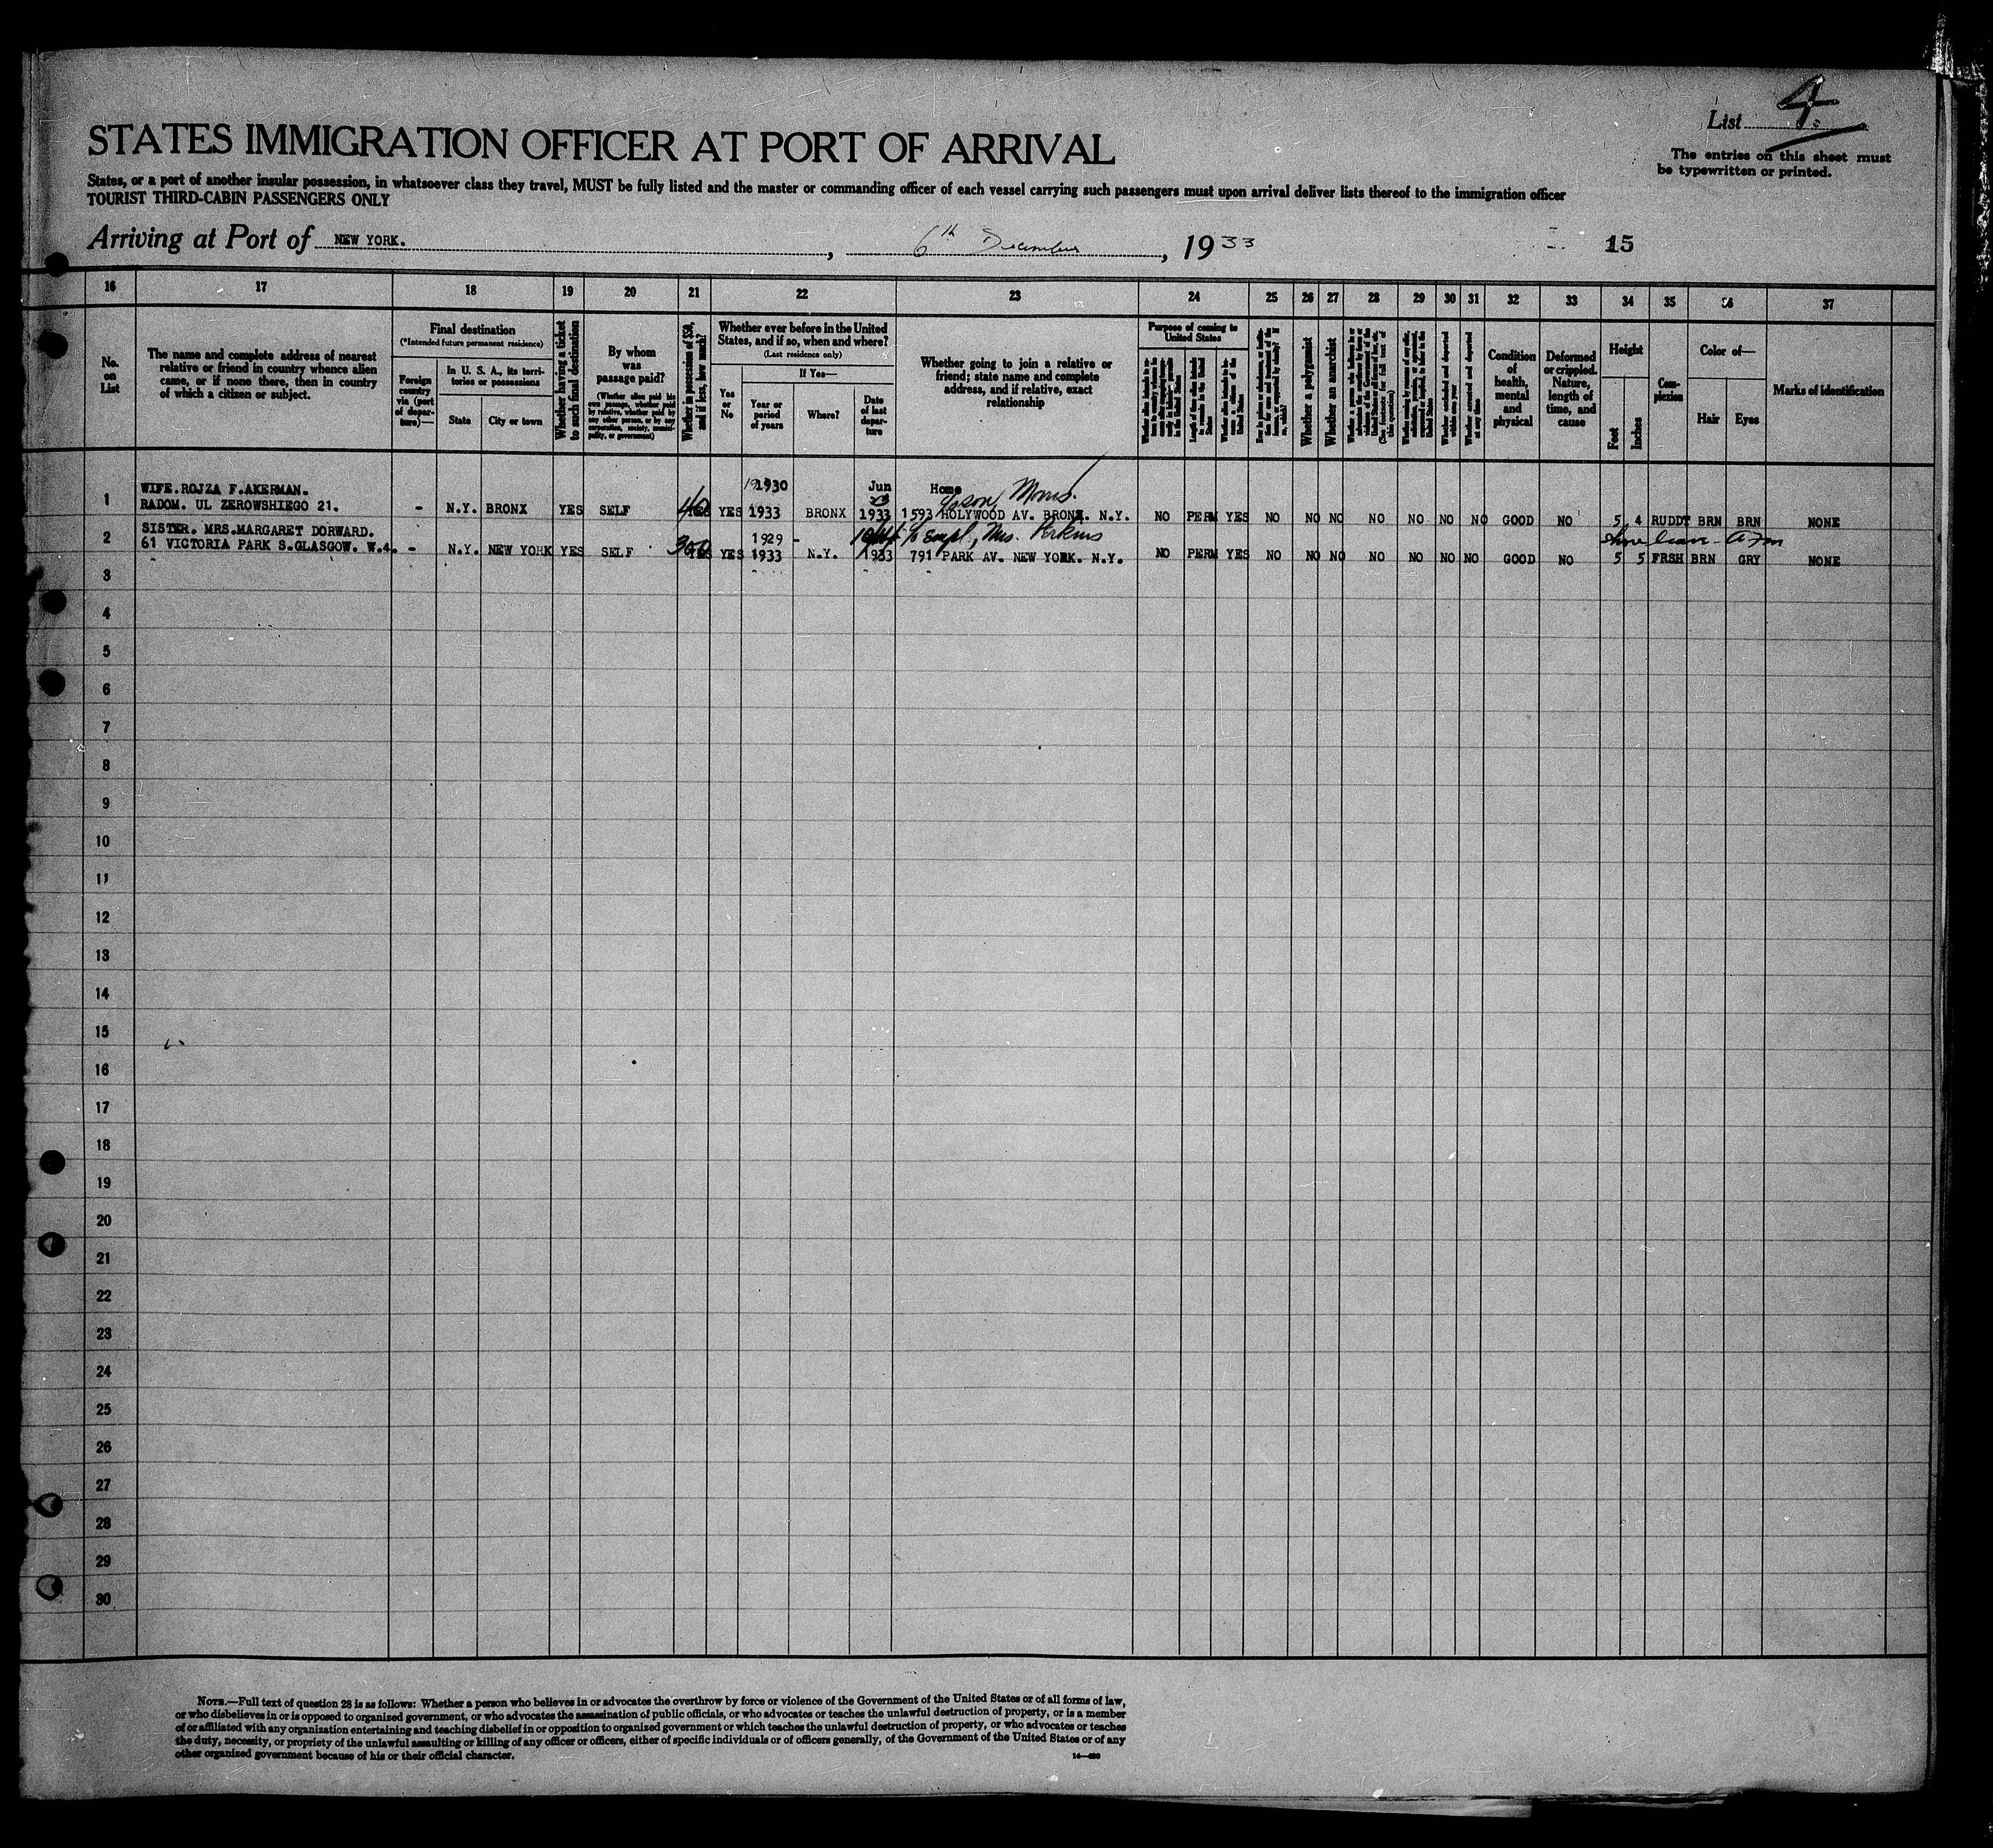 List 4.
The entries on this sheet must
be typewritten or printed.
STATES IMMIGRATION OFFICER AT PORT OF ARRIVAL
States, or a port of another insular possession, in whatsoever class they travel, MUST be fully listed and the master or commanding officer of each vessel carrying such passengers must upon arrival deliver lists thereof to the immigration officer
TOURIST THIRD-CABIN PASSENGERS ONLY
Arriving at Port of NEW YORK. , 6th December , 1933 15
16 17 18 19 20 21 22 23 24 25 26 27 28 29 30 31 32 33 34 35 36 37
No.
on
List
The name and complete address of nearest
relative or friend in country whence alien
came, or if none there, then in country
of which a citizen or subject.
Final destination
(*Intended future permanent residence)
Foreign
country
via (port
of depar-
ture)—
In U. S. A., its terri-
tories or possessions
State
City or town
Whether having a ticket
to such final destination
By whom
was
passage paid?
(Whether alien paid his
own passage, whether paid
by relative, whether paid by
any other person, or by any
corporation, society, munici-
pality, or government)
Whether in possession of $50,
and if less, how much?
Whether ever before in the United
States, and if so, when and where?
(Last residence only)
Yes
or
No
If Yes—
Year or
period
of years
Where?
Date
of last
depar-
ture
Whether going to join a relative or
friend; state name and complete
address, and if relative, exact
relationship
Purpose of coming to
United States
Whether a polygamist
Whether an anarchist
Condition
of
health,
mental
and
physical
Deformed
or crippled.
Nature,
length of
time, and
cause
Height
Feet
Inches
Com-
plexion
Color of—
Hair
Eyes
Marks of identification
1930 Jun Home
WIFE.ROJZA F.AKERMAN. son, Morris.
1 RADOM. UL ZEROWSHIEGO 21. - N.Y. BRONX YES SELF 40 YES 1933 BRONX 1933 1593 HOLYWOOD AV. BRONX. N.Y. NO PERM YES NO NO NO NO NO NO NO GOOD NO 5 4 RUDDY BRN BRN NONE
SISTER. MRS.MARGARET DORWARD. 1929 - Mrs. Perkins
2 61 VICTORIA PARK S.GLASGOW. W.4. - N.Y. NEW YORK YES SELF 300 YES 1933 N.Y. 1933 791 PARK AV. NEW YORK. N.Y. NO PERM YES NO NO NO NO NO NO NO GOOD NO 5 5 FRSH BRN GRY NONE
3
4
5
6
7
8
9
10
11
12
13
14
15
16
17
18
19
20
21
22
23
24
25
26
27
28
29
30
NOTE.—Full text of question 28 is as follows: Whether a person who believes in or advocates the overthrow by force or violence of the Government of the United States or of all forms of law,
or who disbelieves in or is opposed to organized government, or who advocates the assassination of public officials, or who advocates or teaches the unlawful destruction of property, or is a member
of or affiliated with any organization entertaining and teaching disbelief in or opposition to organized government or which teaches the unlawful destruction of property, or who advocates or teaches
the duty, necessity, or propriety of the unlawful assaulting or killing of any officer or officers, either of specific individuals or of officers generally, of the Government of the United States or of any
other organized government because of his or their official character.